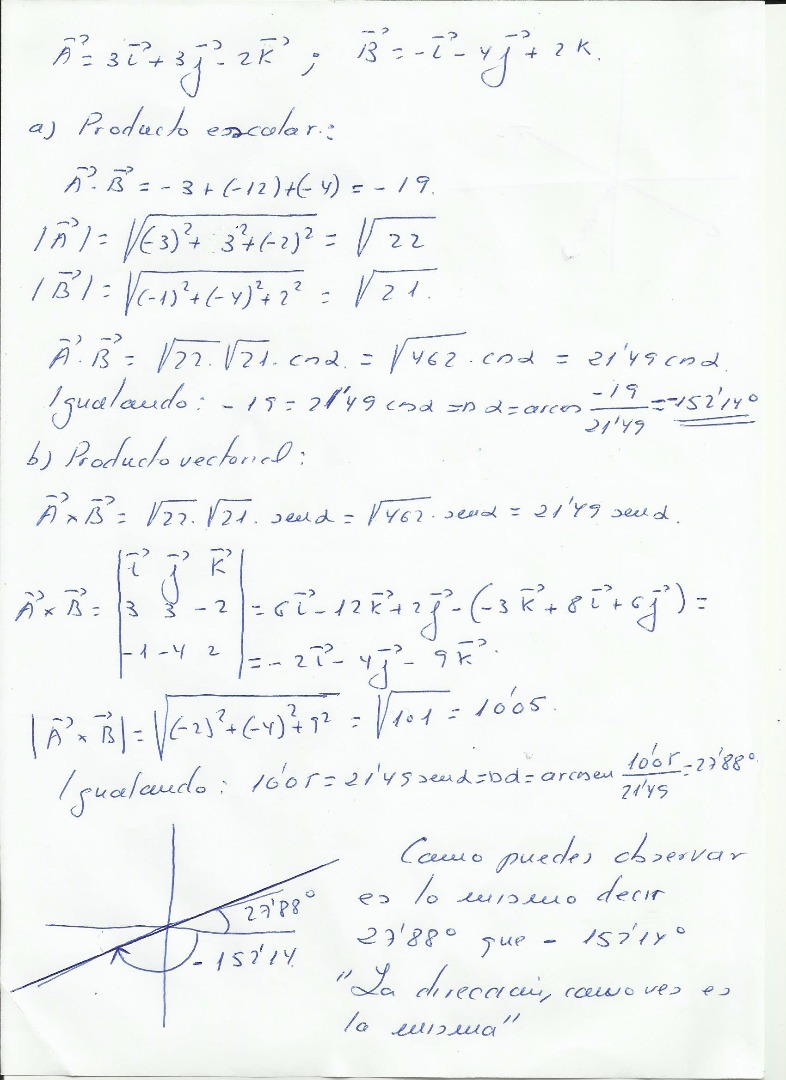 A⃗ = 3i⃗ + 3j⃗ - 2k⃗ ; B⃗ = -i⃗ - 4j⃗ + 2k.
a) Producto escalar:
A⃗ · B⃗ = - 3 + (-12) + (-4) = - 19.
|A⃗| = √((-3)² + 3² + (-2)²) = √22
|B⃗| = √((-1)² + (-4)² + 2²) = √21.
A⃗ · B⃗ = √22 · √21 · cos α = √462 · cos α = 21'49 cos α.
Igualando: - 19 = 21'49 cos α ⇒ α = arcos -19/21'49 = -152'14°
b) Producto vectorial:
A⃗ × B⃗ = √22 · √21 · sen α = √462 · sen α = 21'49 sen α.
A⃗ × B⃗ = | i⃗ j⃗ k⃗ | 3 3 -2 | -1 -4 2 | = 6i⃗ - 12k⃗ + 2j⃗ - (-3k⃗ + 8i⃗ + 6j⃗) =
= - 2i⃗ - 4j⃗ - 9k⃗.
|A⃗ × B⃗| = √((-2)² + (-4)² + 9²) = √101 = 10'05.
Igualando: 10'05 = 21'49 sen α ⇒ α = arcosen 10'05/21'49 = 27'88°
27'88°
- 152'14
Como puedes observar
es lo mismo decir
27'88° que - 152'14°
"La dirección, como ves es
lo mismo"